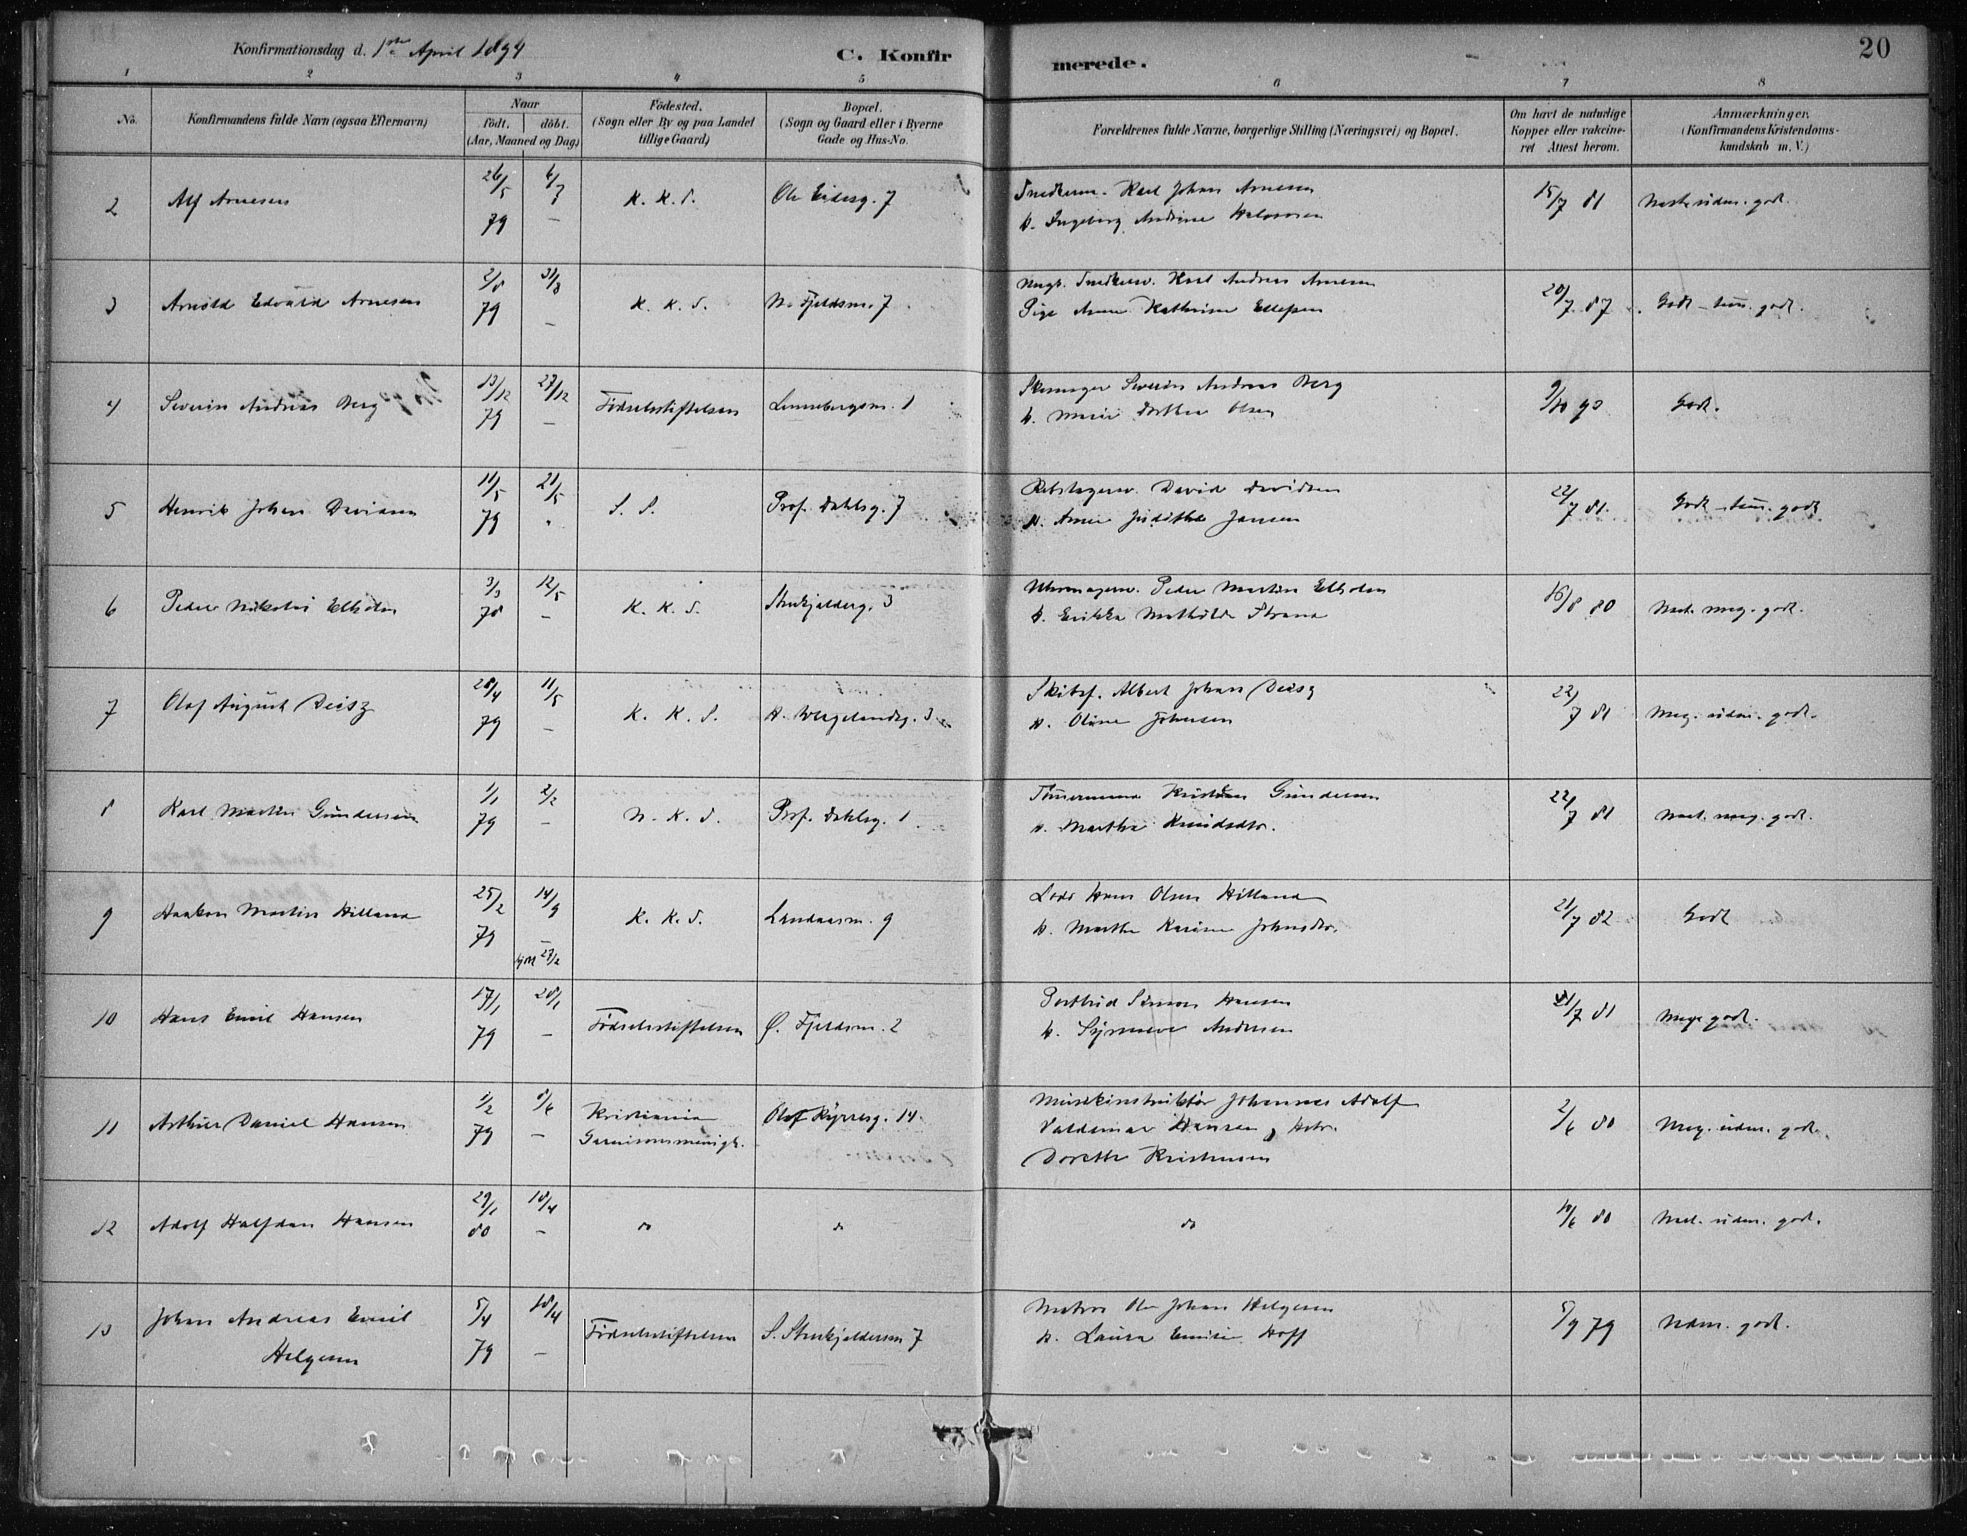 Konfirmationsdag d. 1ste April 1894 C. Konfirmerede. 20
1 2 3 4 5 6 7 8
No. Konfirmandens fulde Navn (ogsaa Efternavn) Naar födt. döbt. (Aar, Maaned og Dag) Födested. (Sogn eller By og paa Landet tillige Gaard) Bopæl. (Sogn og Gaard eller i Byerne Gade og Hus-No. Forældrenes fulde Navne, borgerlige Stilling (Næringsvei) og Bopæl. Om havt de naturlige Kopper eller vakcineret Attest herom. Anmærkninger. (Konfirmandens Kristendomskundskab m. V.)
2 Alf Arnesen 26/5 79 6/7 – K. K. S. Ole Eidesg. 7 Snedkersv. Karl Johan Arnesen
H. Ingeborg Andrine Halvorsen 15/7 81 Næst. udm. godt.
3 Arnold Edvald Arnesen 2/8 79 31/8 – K. K. S. N. Fjeldsm. 7 Ungk. Snedkersv. Karl Andreas Arnesen
Pige Anne Kathrine Ellefsen 20/7 87 Godt – tem. godt.
4 Severin Andreas Berg 13/12 79 27/12 – Fødselsstiftelsen Lennebergsm. 1 Skomager Severin Andreas Berg
H. Marie Dorthea Olsen 9/10 90 Godt.
5 Henrik Johan Davidsen 11/5 79 21/5 S. S. Prof. Dahlsg. 7 Rebslagersv. David Davidsen
H. Anne Judithe Jansen 22/7 81. Godt – tem. godt
6 Peder Nikolai Ellholm 3/3 78 12/5 – K. K. S. Strukjelderg. 3 Uhrmagersv. Peder Martin Ellholm
H. Erikka Mathilde Strand 16/8 80 Næst. meg. godt.
7 Olaf August Deisz 28/4 79 11/5 – K. K. S. H. Wergelandsg. 3 Skibsf. Albert Johan Deisz
H. Oline Johnsen 22/7 81 Meg. udm. godt.
8 Karl Martin Gundersen 1/1 79 2/2 – N. K. S. Prof. Dahlsg. 1 Tømermand Kristian Gundersen
H. Martha Knudsdtr. 22/7 81 Næst. meg. godt.
9 Haakon Martin Hilland 25/2 79 14/9 – hjmd 27/2 K. K. S. Landaasm. 9 Lods Hans Olsen Hilland
H. Marthe Karine Johnsdtr. 21/7 82 Godt
10 Hans Emil Hansen 17/1 79 28/1 – Fødselsstiftelsen Ø. Fjeldsm. 2 Postbud Simon Hansen
H. Synneve Andersen 21/7 81 Meget godt.
11 Arthur Daniel Hansen 1/2 79 8/6 – Kristiania Garnisonsmenigh. Olaf Kyrresg. 14. Musikinstruktør Johannes Adolf
Valdemar Hansen, Hstr.
Dorette Kristensen 2/6 80 Meg. udm. godt.
12 Adolf Halfdan Hansen 29/1 80 18/4 – do do do 10/6 80 Næst. udm. godt.
13 Johan Andreas Emil
Helgesen 5/4 79 18/4 – Fødselsstiftelsen S. Strukjeldersm 7 Matros Ole Johan Helgesen
H. Laura Emilie Hoff 5/9 79 Udm. godt.